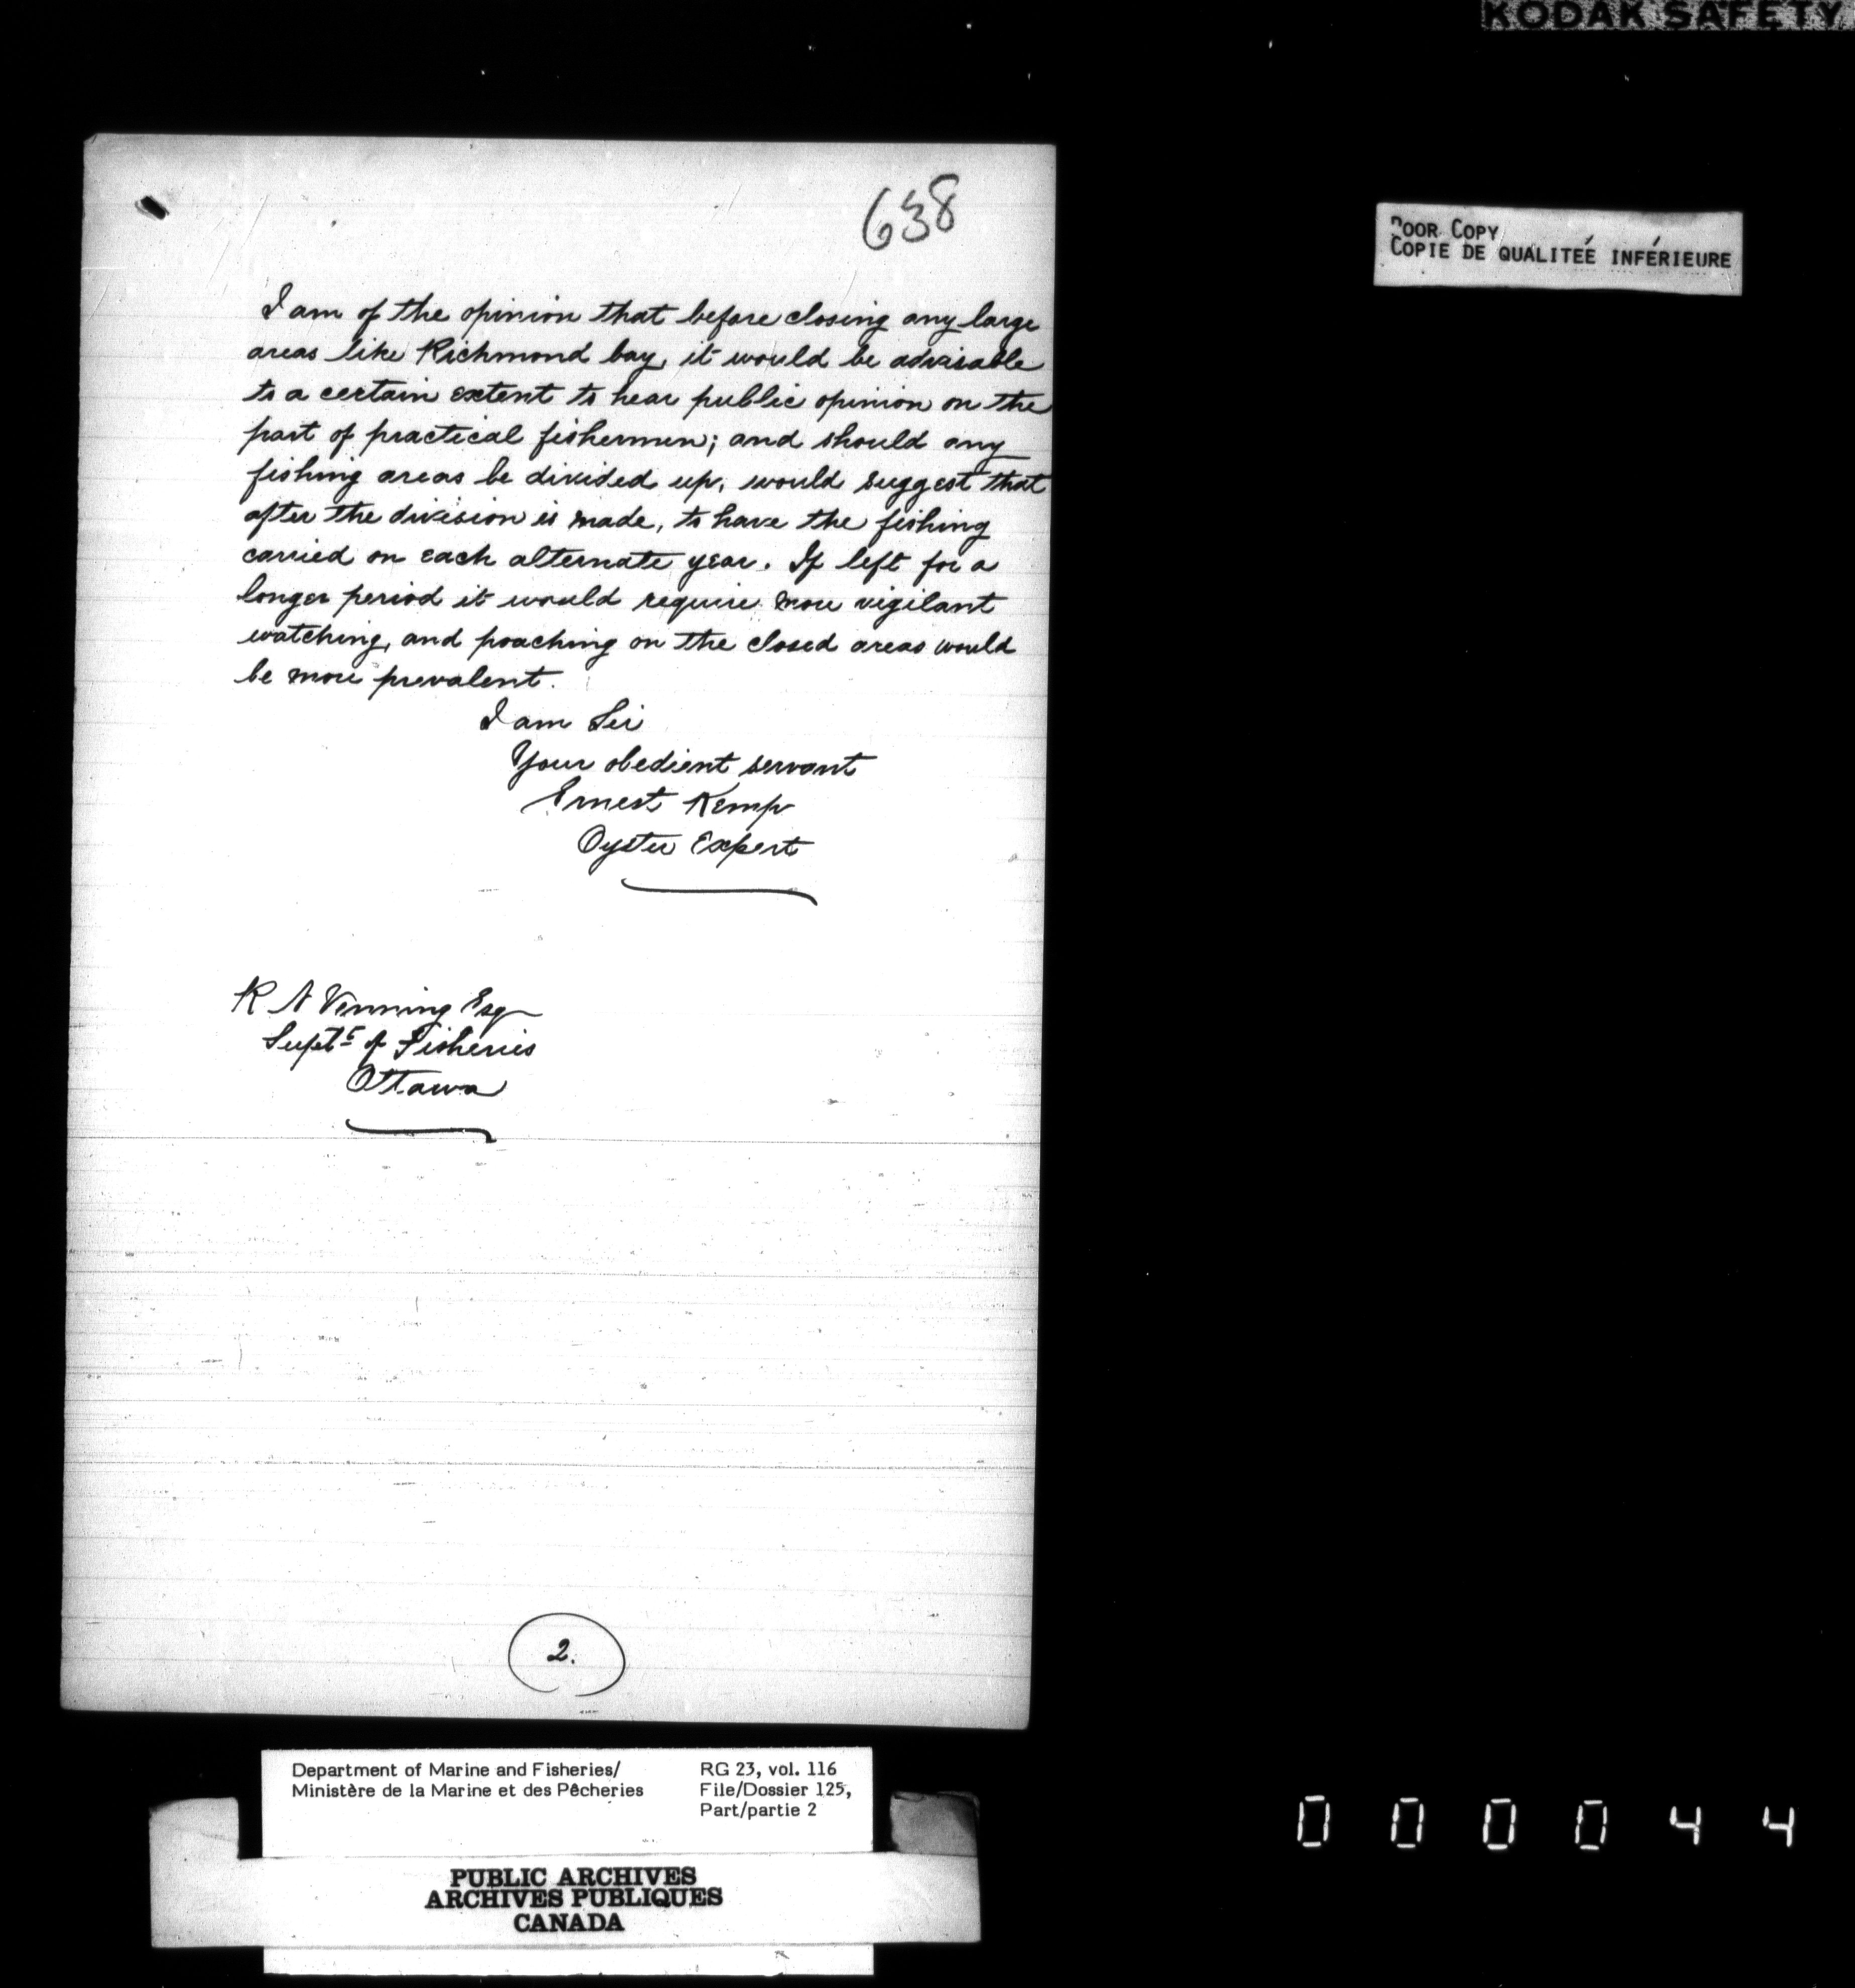 KODAK SAFETY
638
POOR COPY
COPIE DE QUALITEÉ INFÉRIEURE
I am of the opinion that before closing any large
areas like Richmond bay, it would be advisable
to a certain extent to hear public opinion on the
part of practical fishermen; and should any
fishing areas be divided up, would suggest that
after the division is made, to have the fishing
carried on each alternate year. If left for a
longer period it would require more vigilant
watching, and poaching on the closed areas would
be more prevalent.
I am Sir
Your obedient servant
Ernest Kemp
Oyster Expert
R N Venning Esq
Supt r of Fisheries
Ottawa
2.
Department of Marine and Fisheries/
Ministère de la Marine et des Pêcheries
RG 23, vol. 116
File/Dossier 125,
Part/partie 2
PUBLIC ARCHIVES
ARCHIVES PUBLIQUES
CANADA
000044